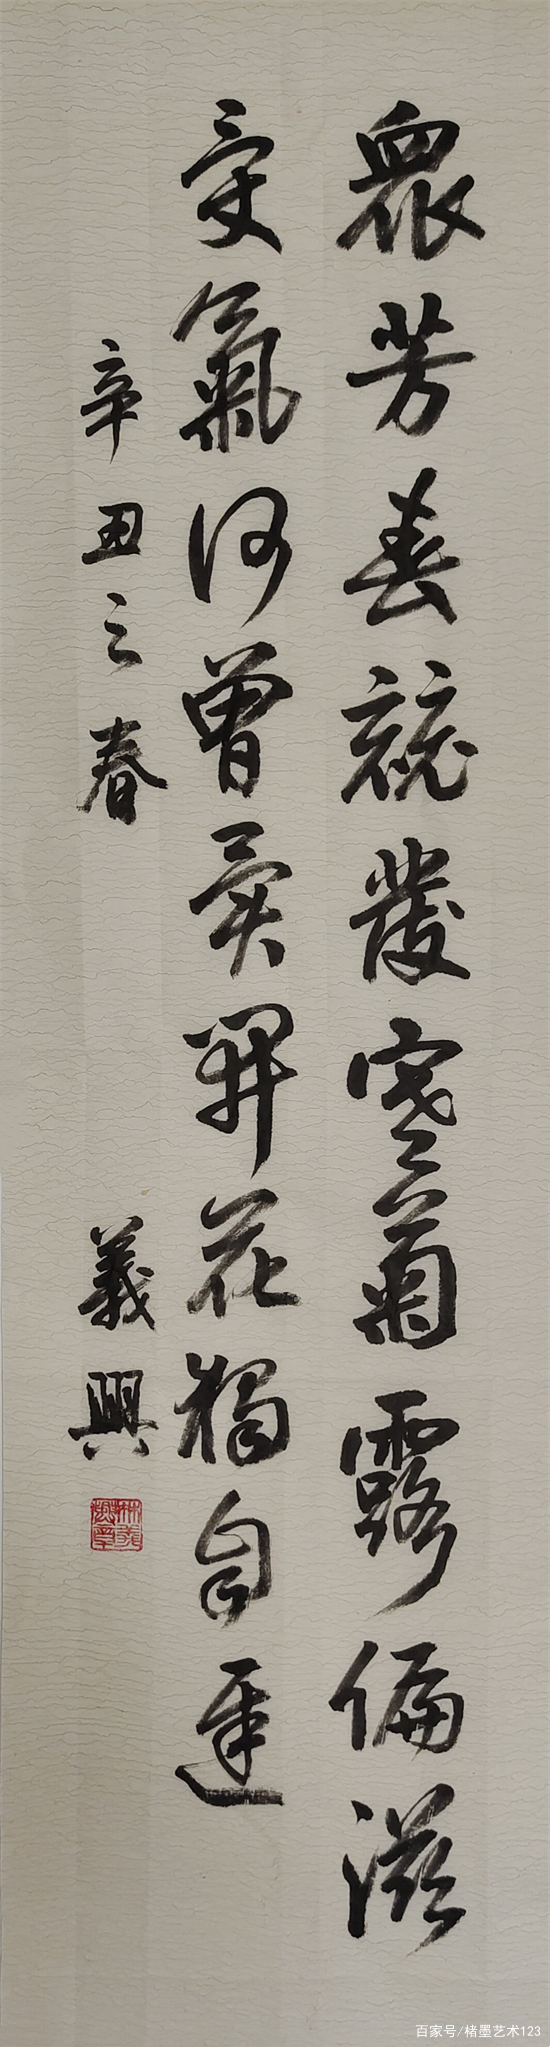 眾芳春競發寒菊露偏滋
受氣何曾異開花獨自遲
辛丑之春 義興
百家号/楮墨艺术123